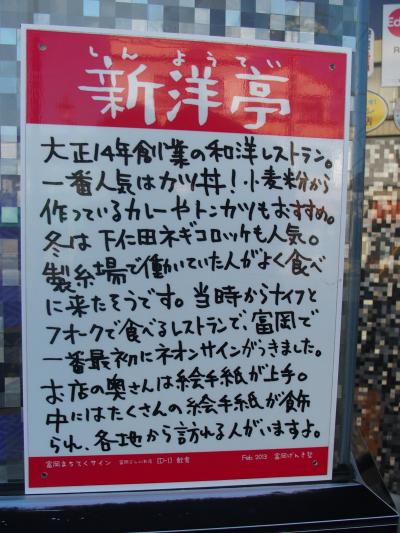 しんようてい
新洋亭
大正14年創業の和洋レストラン。
一番人気はカツ丼！小麦粉から
作っているカレーやトンカツもおすすめ。
冬は下仁田ネギコロッケも人気。
製糸場で働いていた人がよく食べ
に来たそうです。当時からナイフと
フォークで食べるレストランで、富岡で
一番最初にネオンサインがつきました。
お店の奥さんは絵手紙が上手。
中にはたくさんの絵手紙が飾
られ、各地から訪れる人がいますよ。
富岡まちてくサイン [D-1] 飲食 Feb. 2013 富岡げんき塾